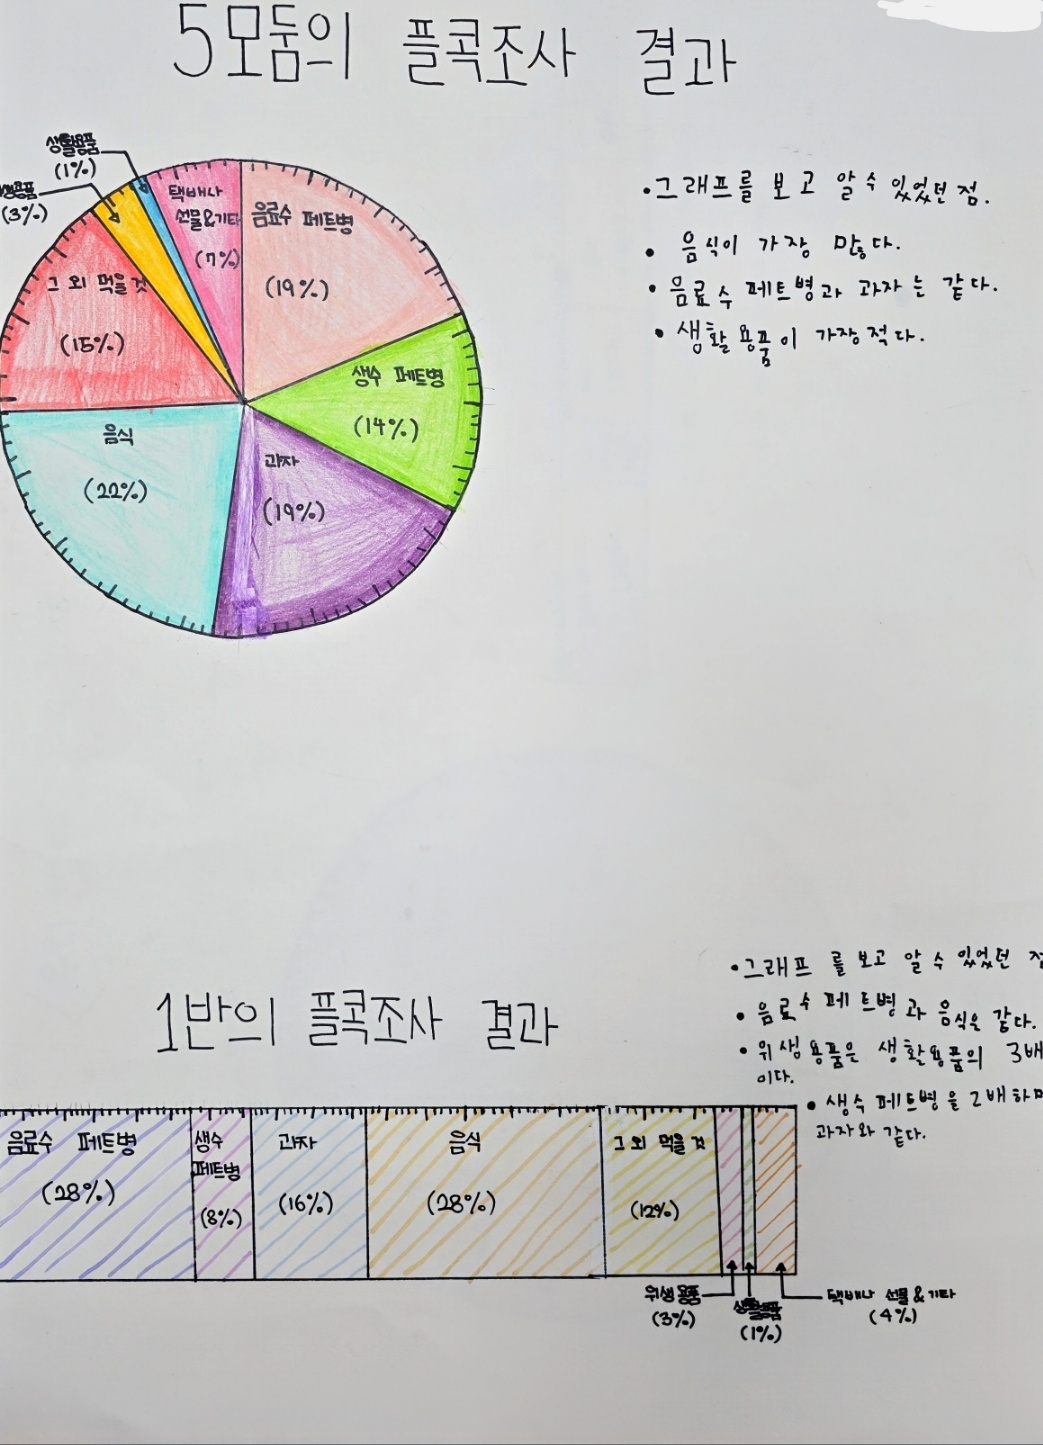 5모둠의 플콕조사 결과
생활용품
(1%)
생용품
(3%)
택배나
선물&기타
(7%)
음료수 페트병
(19%)
그 외 먹을 것
(15%)
생수 페트병
(14%)
음식
(22%)
과자
(19%)
•그래프를 보고 알 수 있었던 점.
• 음식이 가장 많다.
• 음료수 페트병과 과자는 같다.
• 생활용품이 가장 적다.
1반의 플콕조사 결과
•그래프를 보고 알 수 있었던 점
• 음료수 페트병과 음식은 같다.
• 위생용품은 생활용품의 3배
이다.
• 생수 페트병을 2배하면
과자와 같다.
음료수 페트병
(28%)
생수
페트병
(8%)
과자
(16%)
음식
(28%)
그 외 먹을 것
(12%)
위생용품
(3%)
생활용품
(1%)
택배나 선물&기타
(4%)